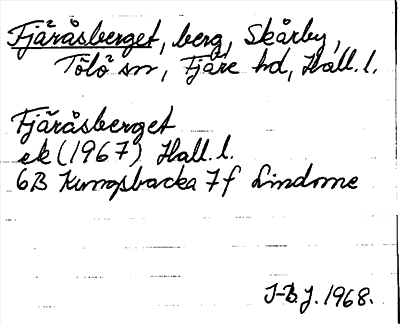 Fjäråsberget, berg, Skårby,
Tölö sn, Fjäre hd, Hall. l.
Fjäråsberget
ek (1967) Hall. l.
6B Kungsbacka 7f Lindome
J-B.J. 1968.